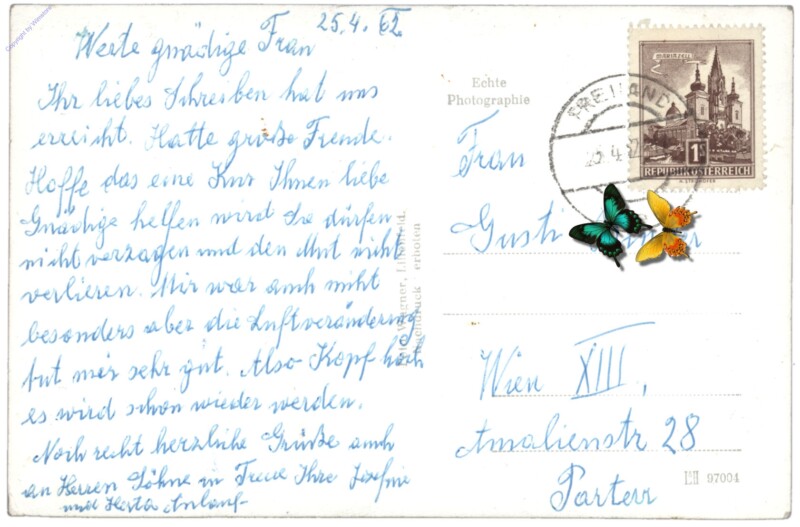 Copyright by Wiesenrei
25.4.62
Werte gnädige Frau
Ihr liebes Schreiben hat uns
erreicht. Hatte große Freude.
Hoffe das eine Kur Ihnen liebe
Gnädige helfen wird Sie dürfen
nicht verzagen und den Mut nicht
verlieren. Mir war auch nicht
besonders aber die Luftveränderung
tut mir sehr gut. Also Kopf hoch
es wird schon wieder werden.
Noch recht herzliche Grüße auch
an Herren Söhne in Treue Ihre Josefine
und Herta
Wagner, Lilienfeld.
erboten
Echte
Photographie
MARIAZELL
1S
REPUBLIK ÖSTERREICH
FREILAND
25.4.62
Frau
Gusti
Wien XIII,
Amalienstr 28
Parterr
97004